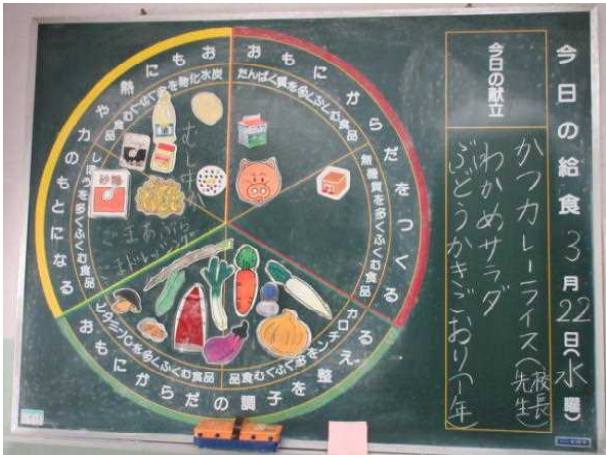 今日の給食 3月22日(水曜)
今日の献立
かつカレーライス(校長先生)
わかめサラダ
ぶどうかきごおり(1年)
おもにからだをつくる
たんぱく質を多くふくむ食品
無機質を多くふくむ食品
おもにからだの調子を整える
カロチンを多くふくむ食品
ビタミンCを多くふくむ食品
おもに熱や力のもとになる
炭水化物を多くふくむ食品
しぼうを多くふくむ食品
砂糖
ごまあぶら
ごまドレッシング